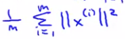 1/m Σ_{i=1}^{m} ||x^{(i)}||²